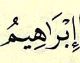 إِبْرَاهِيمُ